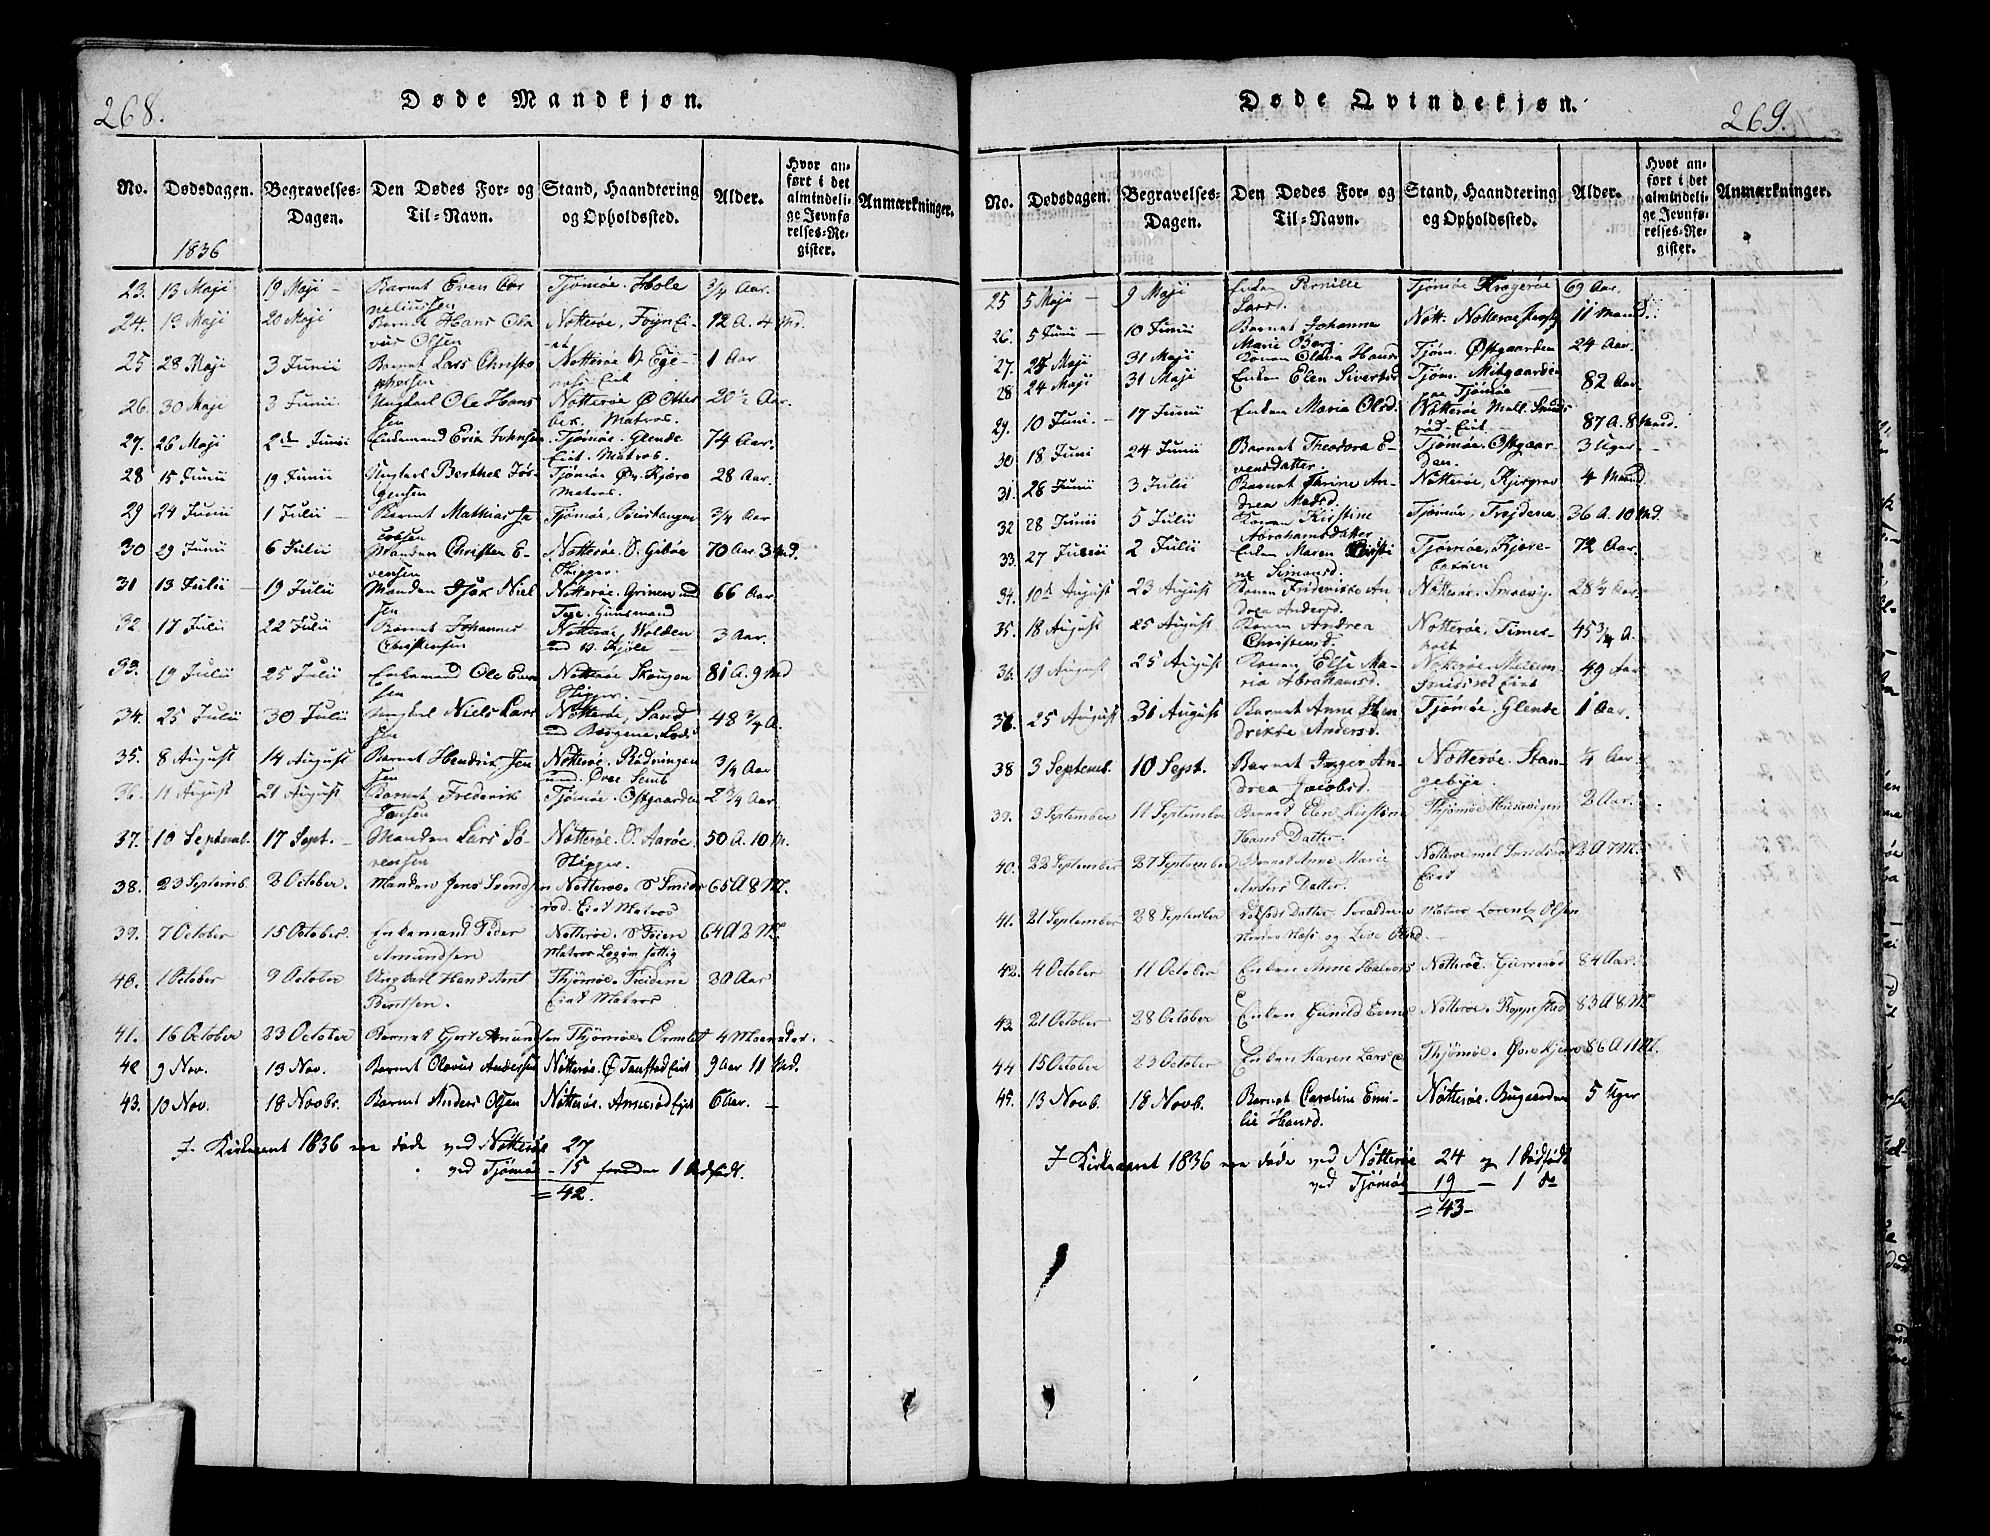 268.
Døde Mandkjøn.
No.
Dødsdagen.
Begravelses-
Dagen.
Den Dødes For- og
Til-Navn.
Stand, Haandtering
og Opholdssted.
Alder.
Hvor an-
ført i det
almindeli-
ge Jevnfø-
relses-Re-
gister.
Anmærkninger.
1836
23. 13 Maji 19 Maji - Barnet Even Cor Tjømøe. Hole 3/4 Aar.
neliussen
24. 13 Maji 20 Maji Barnet Hans Ola Nøtterøe, Føyn Ei- 12 A. 4 Md.
vus Olsen
25 28 Maji 3 Junii Barnet Lars Christo Nøtterøe 1 Aar
phersen
26. 30 Maji 3 Junii Ungkarl Ole Hans Nøtterøe Ø 20 1/2 Aar.
sen Matros.
27. 26 Maji 2den Junii Enkemand Erik Johnsen Tjømøe. Glende 74 Aar.
Eiet. Matros.
28 15 Junii 19 Junii Ungkarl Berthel Jør- Tjømøe Øv. Kjære 28 Aar.
gensen Matros.
29 24 Junii 1 Julii - Barnet Mathias Ja Tjømøe, 3/4 Aar
cobsen
30 29 Junii 6 Julii Manden Christen E- Nøtterøe. S. Gibøe 70 Aar 3 Md.
vensen Skipper.
31 13 Julii 19 Julii Manden Isak Niel Nøtterøe. Grinen und 66 Aar
sen
32. 17 Julii 22 Julii Barnet Johannes Nøtterøe, Wolden 3 Aar.
Christensen
33. 19 Julii 25 Julii Enkemand Ole Even Nøtterøe Skougen 81 A. 9 Md
sen Skipper.
34. 25 Julii 30 Julii Ungkarl Niels Lars Nøtterøe, Sand 48 3/4 A.
sen
35. 8 August 14 August Barnet Hendrik Jen Nøtterøe. Rødningen 3/4 Aar
sen und. Øvre Semb
36. 11 August 21 August Barnet Frederik Tjømøe. Østgaarden 2 3/4 Aar.
Jansen
37. 10 Septemb. 17 Sept. - Manden Lars Sø- Nøtterøe. S. Aarøe 50 A. 10 M.
rensen Skipper.
38. 23 Septemb. 2 October. Manden Jens Svendsen Nøtterøe. S Smids 65 A 8 M.
rød. Eiet Matros
39. 7 October 15 October. Enkemand Peder Nøtterøe. S Føien 64 A 2 M.
Amundsen Matros Lægdm fattig
40. 1 October 9 October Ungkarl Hans Arnt Thjømøe. Treidene 30 Aar
Berntsen. Eiet Matros
41. 16 October 23 October Barnet Gjert Amundsen Thjømøe. Ormlet 4 Maaneder.
42 9 Nov. 13 Nov. Barnet Olavus Andersen Nøtterøe. Ø Tanstad Eiet 9 Aar 11 Md.
43. 10 Nov. 18 Novbr. Barnet Anders Olsen Nøtterøe. Annerød Eiet 6 Aar. -
I Kirkeaaret 1836 ere døde ved Nøtterøe 27
ved Tjømøe - 15 foruden 1 dødfødt.
= 42.
269.
Døde Qvindekjøn.
No.
Dødsdagen.
Begravelses-
Dagen.
Den Dødes For- og
Til-Navn.
Stand, Haandtering
og Opholdssted.
Alder.
Hvor an-
ført i det
almindeli-
ge Jevnfø-
relses-Re-
gister.
Anmærkninger.
25 5 Maji - 9 Maji Enken Pernille Tjømøe Kragerøe 69 Aar.
Larsd.
26. 5 Juni - 10 Junii Barnet Johanne Nøtt. 11 Maand.
Marie Berg.
27. 24 Maji 31 Maji Konen Hansd Tjøm. Østgaarden 24 Aar.
28 24 Maji 31 Maji Enken Elen Sivertsd Tjøm. Mitgaarden 82 Aar
29. 10 Juni - 17 Junii Enken Maria Olsd. Nøtterøe Mell. Smids 87 A. 8 Md.
rød - Eiet
30 18 Juni 24 Junii Barnet Theodora E- Tjømøe. Østgaar- 3 Uger. -
vensdatter. den.
31. 28 Junii 3 Julii Barnet Thrine An- Nøtterøe, 4 Maand.
drea Madsd.
32 28 Junii 5 Julii Konen Kirstine Tjømøe, Trejdene 36 A. 10 Md.
Abrahamsdatter
33. 27 Junii 2 Julii Enken Maren Kirsti Tjømøe, Kjøre- 72 Aar.
ne Simonsd.
34. 10de August 23 August Konen Fridericke An- Nøtterøe. 28 1/2 Aar.
drea Andersd.
35. 18 August 25 August Konen Andrea Nøtterøe, Times- 45 3/4 A.
Christensd. holt
36. 19 August 25 August Konen Else Ma- Nøtterøe. Mellem- 49 Aar
ria Abrahamsd. Smidsrød Eiet
37. 25 August 31 August Barnet Anne Hen Tjømøe. Glende 1 Aar.
drikke Andersd.
38 3 Septemb. 10 Sept. Barnet Inger An- Nøtterøe. Stan- 1/4 Aar.
drea Jacobsd. gebye
39. 3 September 11 September Barnet Elen Kirstine Thjømøe 2 Aar.
Hans Datter.
40. 22 September 27 September Barnet Anne Marie Nøtterøe mel Smidsrød 12 A 7 M.
Anders Datter. Eiet
41. 21 September 28 September Dødfødt Datter. Forældrene Matros Lorentz Olsen
42. 4 October 11 October Enken Anne Halvors Nøtterøe. 84 Aar.
43. 21 October 28 October Enken Gunild Evens Nøtterøe. Roppestad 83 A 8 M.
44 15 October 23 October Enken Karen Larsd Thjømøe. Øvre Kjære 86 A 11 M.
45. 13 Novb. 18 Novb. Barnet Caroline Emi- Nøtterøe. Bugaarden 5 Uger
lie Hansd.
I Kirkeaaret 1836 ere døde ved Nøtterøe 24 og 1 dødfødt
ved Tjømøe 19 - 1 do
= 43 -